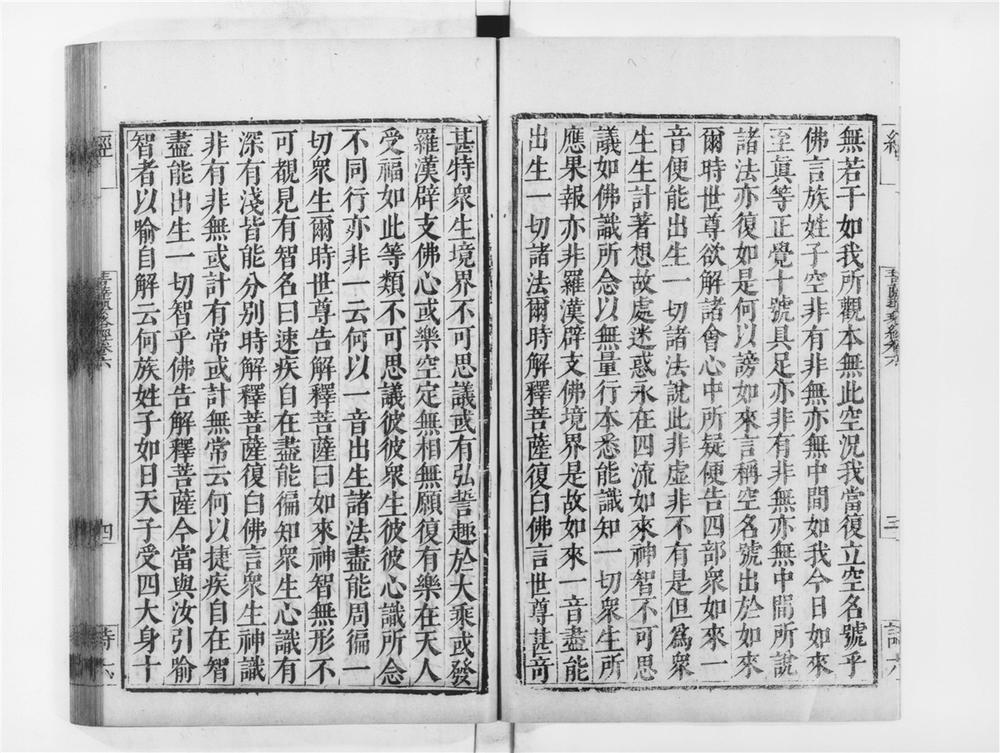 無若干如我所觀本無此空況我當復立空名號乎
佛言族姓子空非有非無亦無中間如我今日如來
至眞等正覺十號具足亦非有非無亦無中間所說
諸法亦復如是何以謗如來言稱空名號出於如來
爾時世尊欲解諸會心中所疑便告四部衆如來一
音便能出生一切諸法說此非虛非不有是但爲衆
生生計著想故處迷惑永在四流如來神智不可思
議如佛識所念以無量行本悉能識知一切衆生所
應果報亦非羅漢辟支佛境界是故如來一音盡能
出生一切諸法爾時解釋菩薩復白佛言世尊甚奇
甚特衆生境界不可思議或有弘誓趣於大乘或發
羅漢辟支佛心或樂空定無相無願復有樂在天人
受福如此等類不可思議彼彼衆生彼彼心識所念
不同行亦非一云何以一音出生諸法盡能周徧一
切衆生爾時世尊告解釋菩薩曰如來神智無形不
可觀見有智名曰速疾自在盡能徧知衆生心識有
深有淺皆能分別時解釋菩薩復白佛言衆生神識
非有非無或計有常或計無常云何以捷疾自在智
盡能出生一切智乎佛告解釋菩薩今當與汝引喻
智者以喻自解云何族姓子如日天子受四大身十
經
三
四
詩六